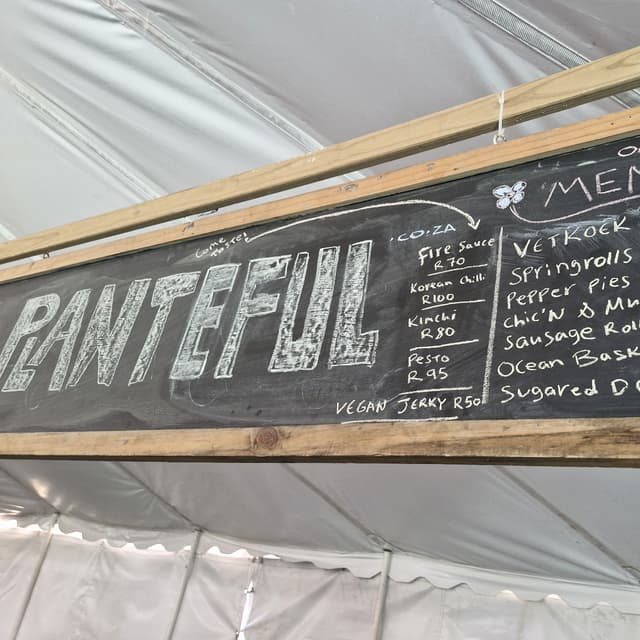 PLANTEFUL
.CO.ZA
Fire Sauce
R70
Korean Chilli
R100
Kimchi
R80
Pesto
R95
VEGAN JERKY R50
MEN
VETKOEK
Springrolls
Pepper Pies
Chic'N & Mu
Sausage Rol
Ocean Bask
Sugared Do